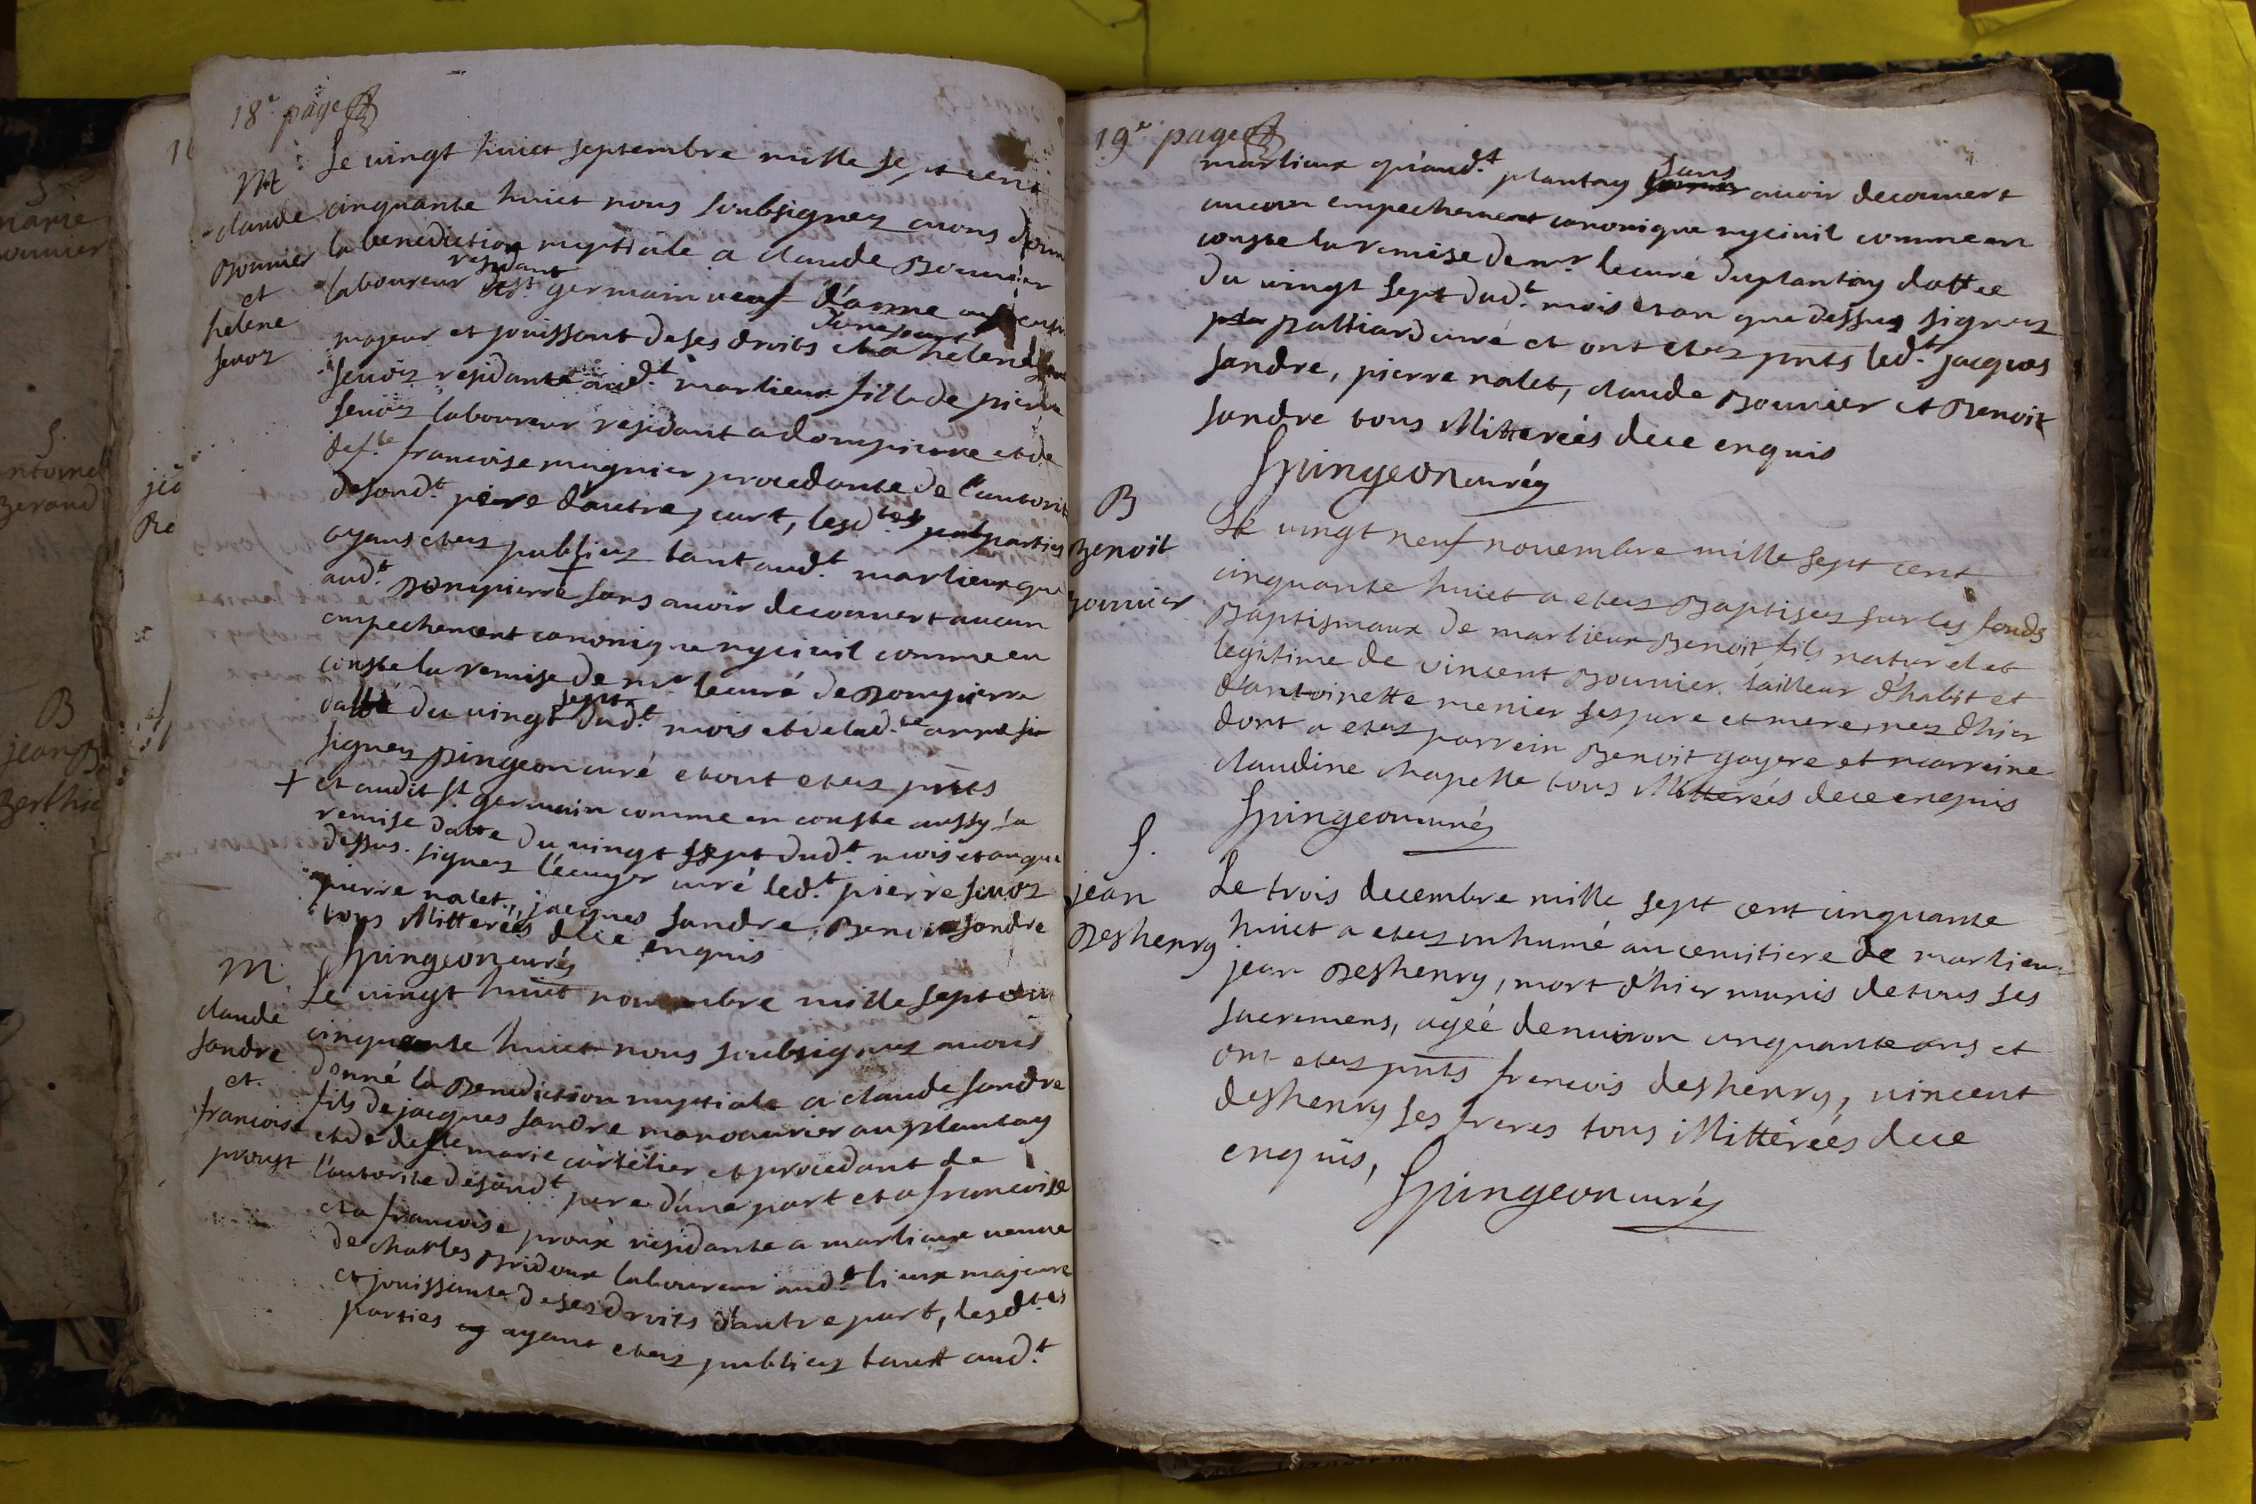 18e page
M
claude
Bouvier
et
helene
sevoz
Le vingt huict septembre mille sept cent
cinquante huict nous soubsignez avons donné
la benediction nuptiale a claude Bouvier
laboureur residant a st. germain veuf d'anne
majeur et jouissant de ses droits d'une part et a helene
sevoz residante aud.t marlieux fille de pierre
sevoz laboureur residant a dompierre et de
def.te francoise mugnier procedante de l'autorité
de sond.t pere d'autre part, lesd.tes parties
ayans etez publiez tant aud.t marlieux que
aud.t Dompierre sans avoir decouvert aucun
empechement canonique ny civil comme en
conste la remise de mr. le curé de Dompierre
datté du vingt sept dud.t mois et de lad.te année
signez pingeon curé et ont etez pnts
+ et audit st. germain comme en conste aussy la
remise datte du vingt sept dud.t mois et an que
dessus. signez l'ecuyer curé led.t pierre sevoz
pierre nalet, jacques sandre, Benoit sandre
tous illitterées de ce enquis
Spingeon curéz
M.
claude
sandre
et.
francoise
proust
Le vingt huict novembre mille sept cent
cinquante huict nous soubsignez avons
donné la Benediction nuptiale a claude sandre
fils de jacques sandre manouvrier au plantay
et de def.te marie curtelier et procedant de
l'autorite de sond.t pere d'une part et a francoise
et a francoise proux residante a marlieux veuve
de charles Bridoux laboureur aud.t lieux majeure
et jouissante de ses droits d'autre part, lesd.tes
parties ayant etez publiez tant aud.t
19e page
marlieux qu'aud.t plantay sans avoir decouvert
aucun empechement canonique ny civil comme en
conste la remise de mr. le curé du plantay dattee
du vingt sept dud.t mois et an que dessus signez
palliard curé et ont etez pnts led.t jacques
sandre, pierre nalet, claude Bouvier et Benoit
sandre tous illitterées de ce enquis
Spingeon curéz
B
Benoit
Bouvier
Le vingt neuf novembre mille sept cent
cinquante huict a etez Baptisez sur les fonds
Baptismaux de marlieux Benoit fils naturel et
legitime de vincent Bouvier tailleur d'habit et
d'antoinette menier ses pere et mere, nez d'hier
dont a etez parrein Benoit goyere et marreine
claudine chapelle tous illitterées de ce enquis
Spingeon curéz
S.
jean
Deshenry
Le trois decembre mille sept cent cinquante
huict a etez inhumé au cemitiere de marlieux
jean Deshenry, mort d'hier munis de tous ses
sacremens, agéé d'environ cinquante ans et
ont etez pnts francois deshenry, vincent
deshenry ses freres tous illittérées de ce
enquis,
Spingeon curéz